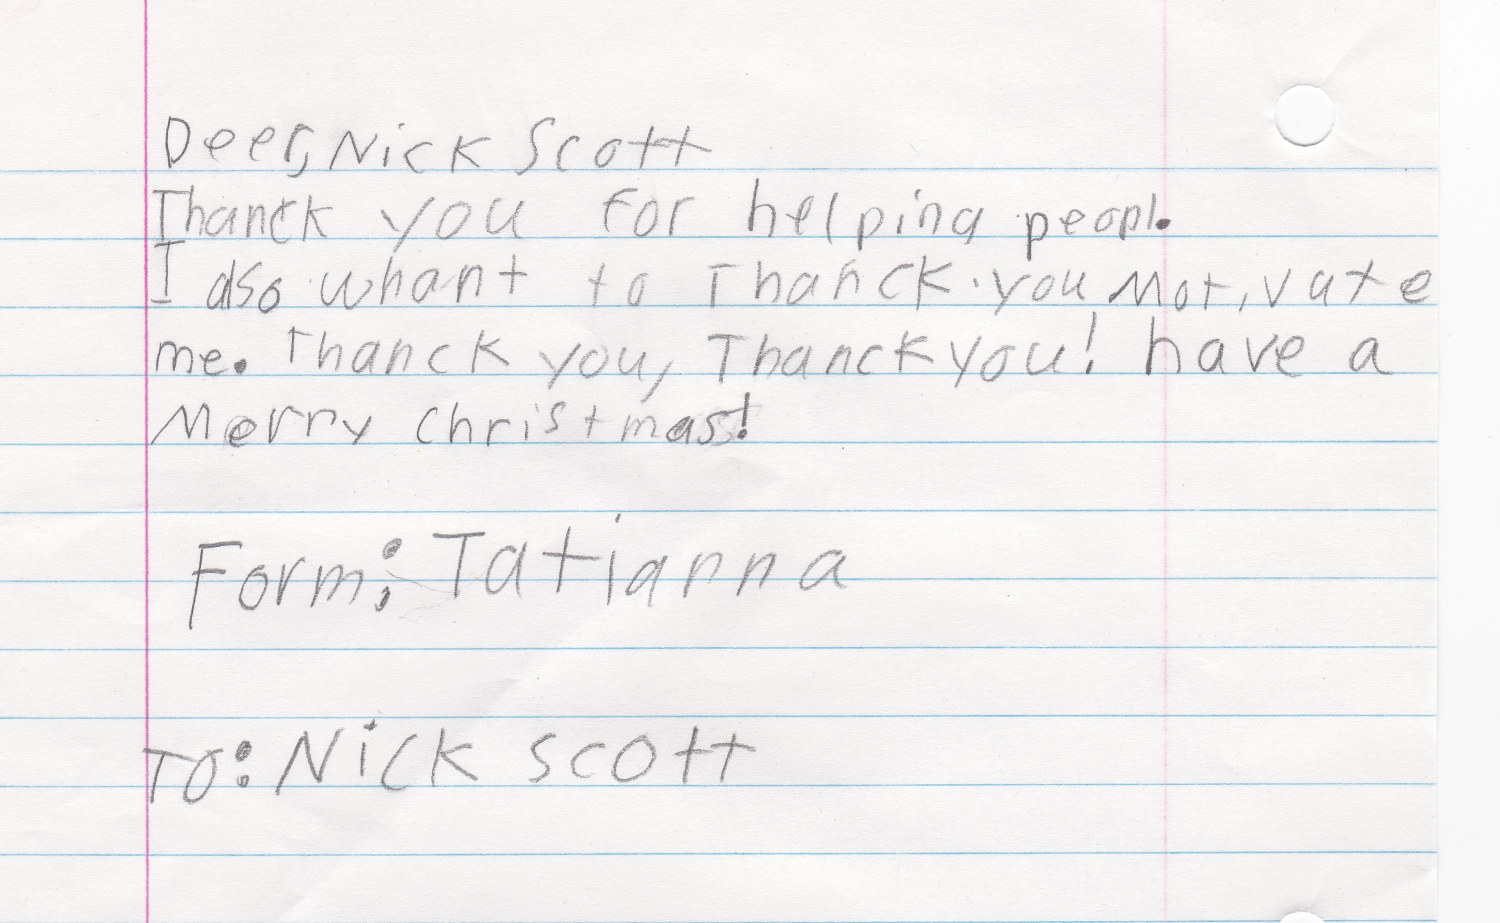 Deer, Nick Scott
Thanck you for helping peopl.
I also whant to Thanck.you Motivate
me. Thanck you, Thanck you! have a
Merry Christmas!
Form; Tatianna
To: Nick scott